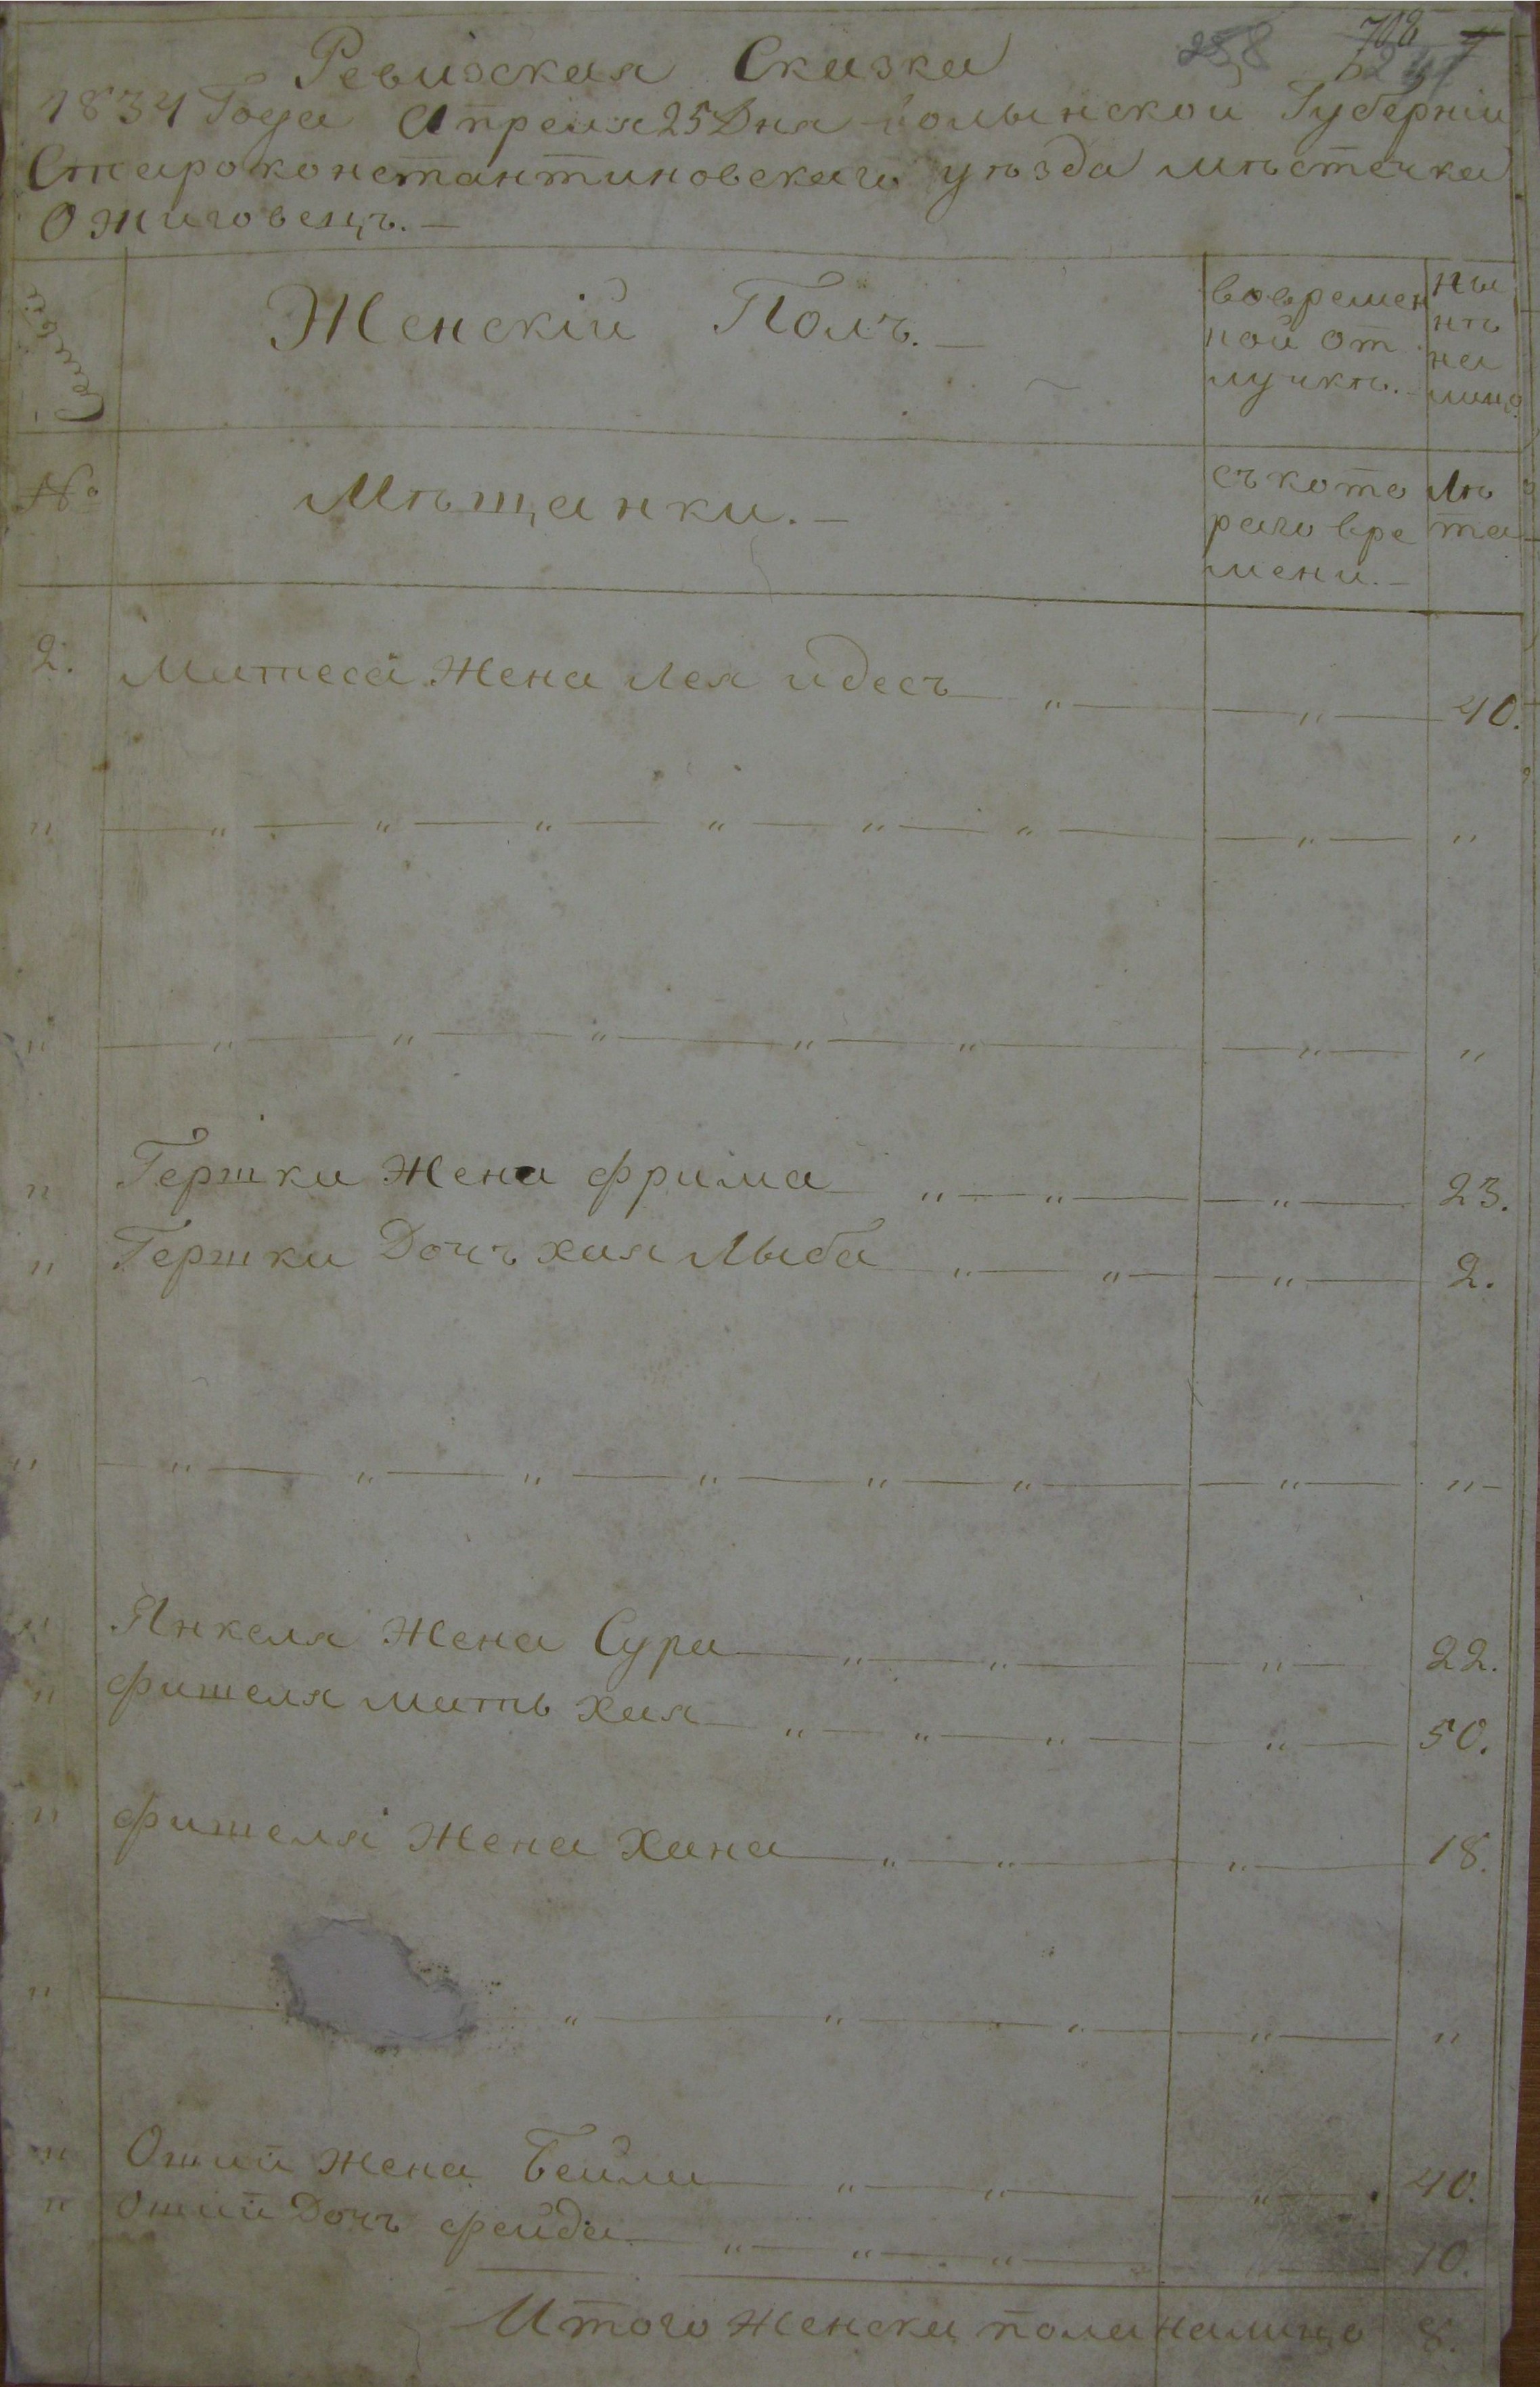 258 708 247
Ревизская Сказка
1834 Года Апреля 25 Дня Волынской Губерніи
Староконстантиновскаго уѣзда мѣстечка
Ожиговецъ. —
Семьи
Женскій Полъ. —
вовремен
ной от
лучкѣ. —
ны
нѣ
на
лицо.
№
Мѣщанки. —
съ кото
раго вре
мени. —
Лѣ
та
2. Жена Лея идесъ — „ — — „ — 40.
„ — „ — „ — „ — „ — „ — „ — — „ — „
„ — „ — „ — „ — „ — „ — — „ — „
„ Гершки Жена фрима „ — „ — — „ — 23.
„ Гершки Дочъ хая Лыба „ — „ — — „ — 2.
„ — „ — „ — „ — „ — „ — „ — — „ — „ —
„ Янкеля Жена Сура — „ — „ — — „ — 22.
„ фишеля мать Хая — „ — „ — „ — — „ — 50.
„ фишеля Жена Хана — „ — „ — „ — 18.
„ — „ — „ — „ — — „ — „
„ Ошии Жена Бейли — „ — „ — — „ — 40.
„ Ошии Дочъ фейда — „ — „ — „ — „ — 10.
Итого женска пола налицо 8.